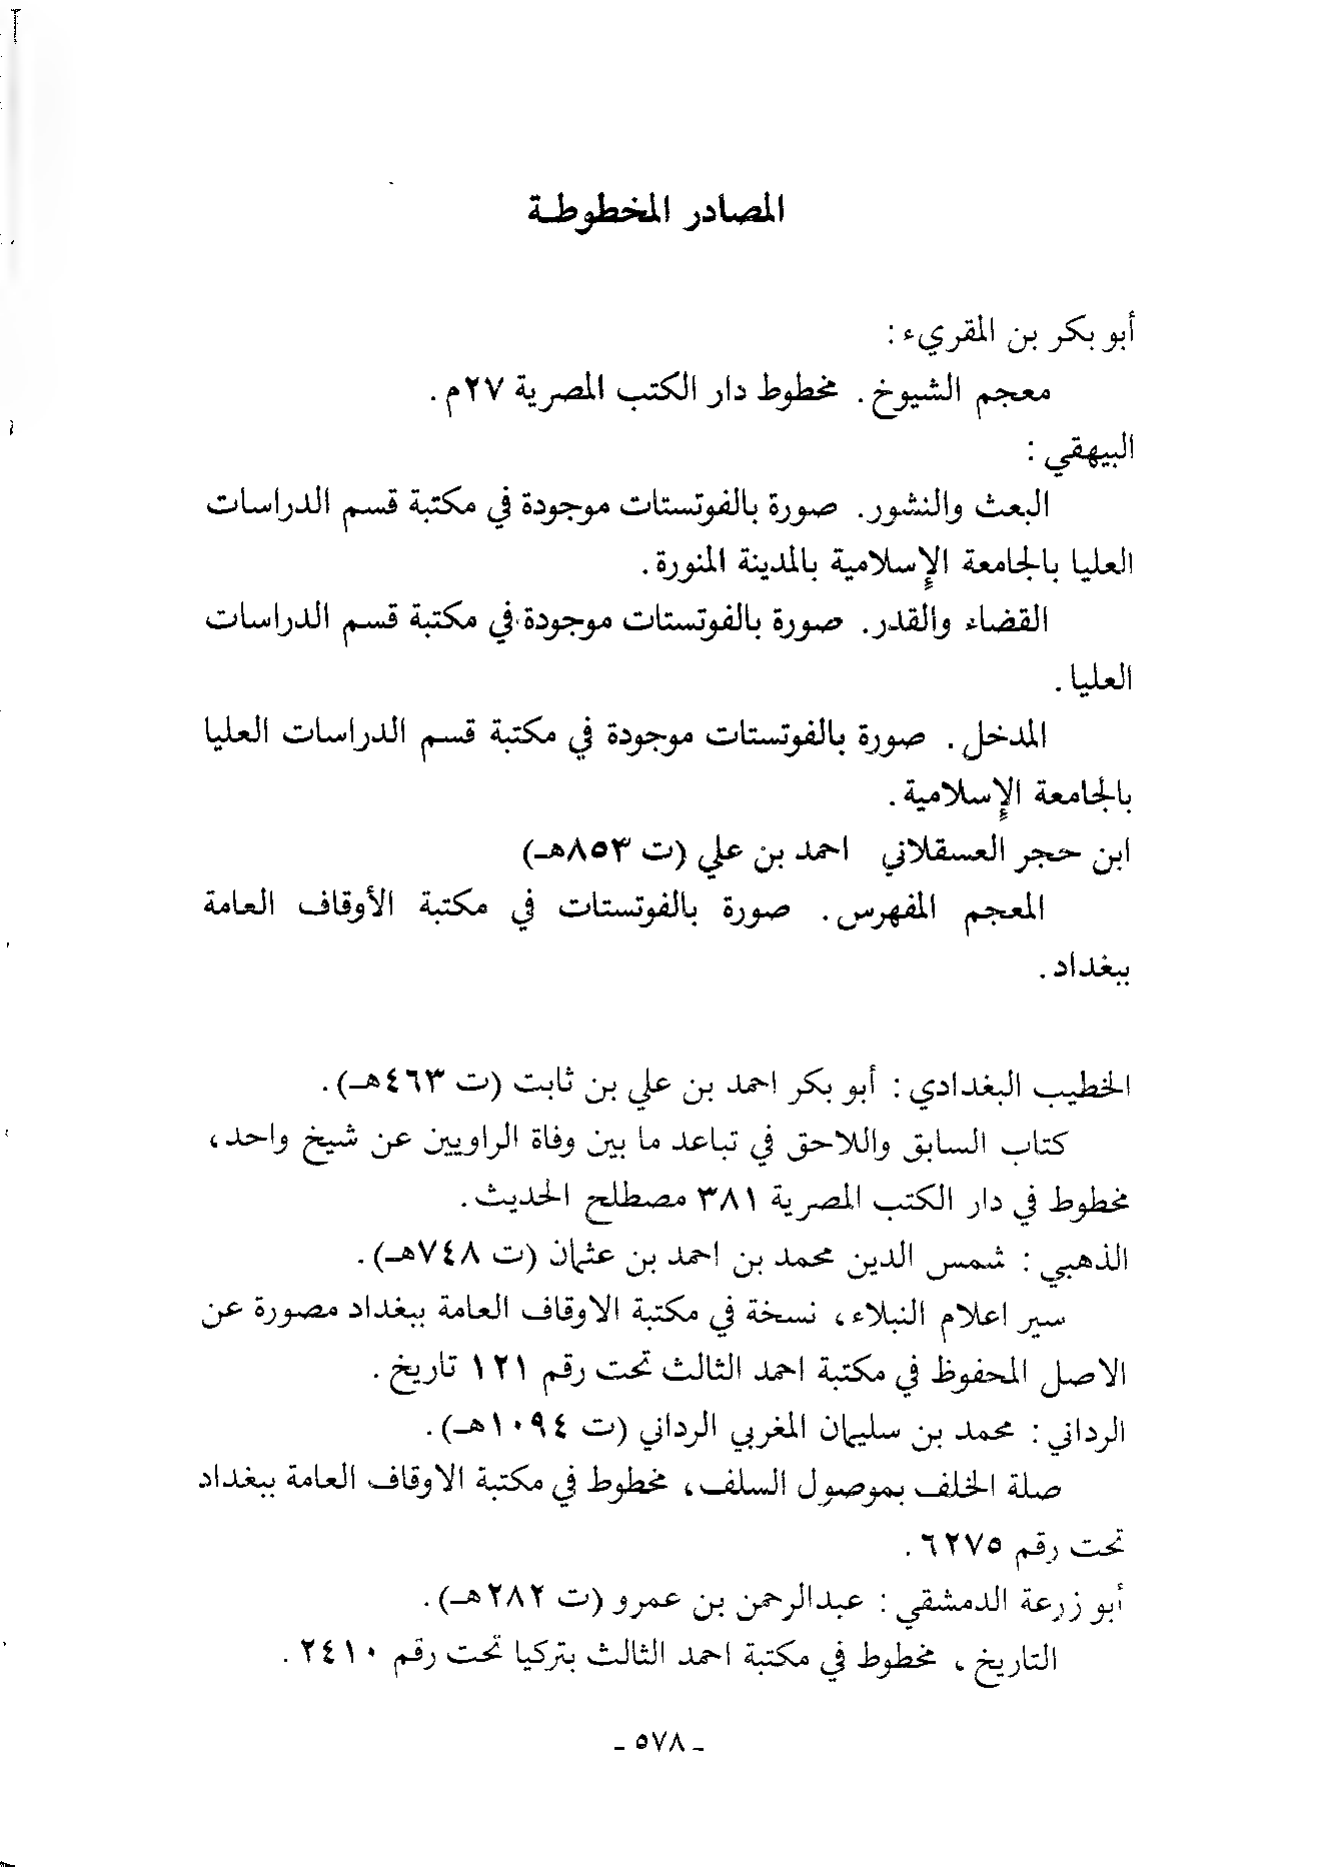 المصادر المخطوطة
أبو بكر بن المقريء :
معجم الشيوخ . مخطوط دار الكتب المصرية ٢٧م .
البيهقي :
البعث والنشور . صورة بالفوتستات موجودة في مكتبة قسم الدراسات
العليا بالجامعة الإسلامية بالمدينة المنورة .
القضاء والقدر . صورة بالفوتستات موجودة في مكتبة قسم الدراسات
العليا .
المدخل . صورة بالفوتستات موجودة في مكتبة قسم الدراسات العليا
بالجامعة الإسلامية .
ابن حجر العسقلاني احمد بن علي (ت ٨٥٣هـ)
المعجم المفهرس . صورة بالفوتستات في مكتبة الأوقاف العامة
ببغداد .
الخطيب البغدادي : أبو بكر احمد بن علي بن ثابت (ت ٤٦٣هـ) .
كتاب السابق واللاحق في تباعد ما بين وفاة الراويين عن شيخ واحد ،
مخطوط في دار الكتب المصرية ٣٨١ مصطلح الحديث .
الذهبي : شمس الدين محمد بن احمد بن عثمان (ت ٧٤٨هـ) .
سير اعلام النبلاء ، نسخة في مكتبة الاوقاف العامة ببغداد مصورة عن
الاصل المحفوظ في مكتبة احمد الثالث تحت رقم ١٢١ تاريخ .
الرداني : محمد بن سليمان المغربي الرداني (ت ١٠٩٤هـ) .
صلة الخلف بموصول السلف ، مخطوط في مكتبة الاوقاف العامة ببغداد
تحت رقم ٦٢٧٥ .
أبو زرعة الدمشقي : عبدالرحمن بن عمرو (ت ٢٨٢هـ) .
التاريخ ، مخطوط في مكتبة احمد الثالث بتركيا تحت رقم ٢٤١٠ .
ـ ٥٧٨ ـ